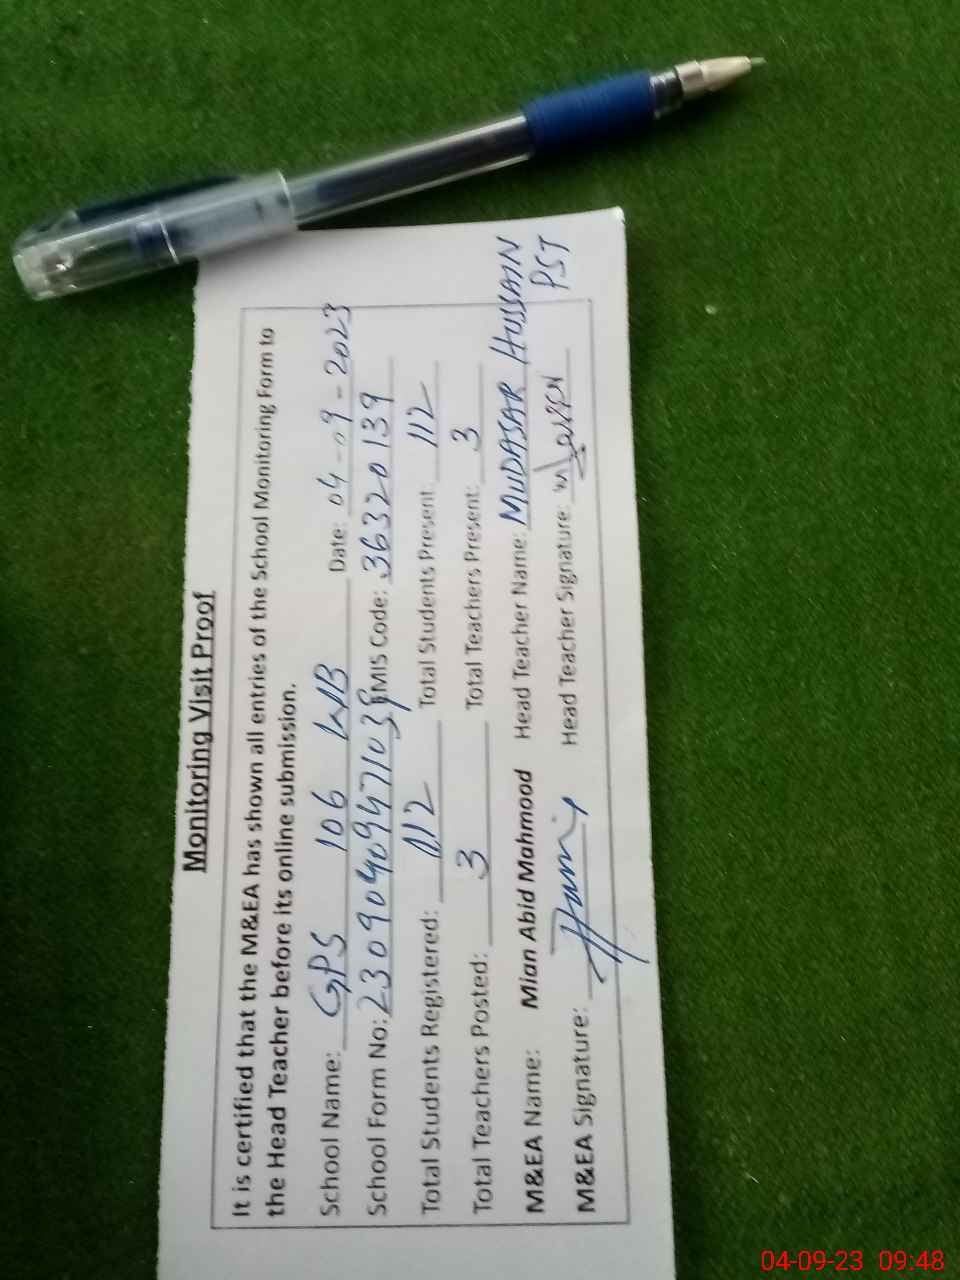 Monitoring Visit Proof
It is certified that the M&EA has shown all entries of the School Monitoring Form to
the Head Teacher before its online submission.
School Name: GPS 106 WB Date: 04-09-2023
School Form No: EMIS Code: 36320139
Total Students Registered: 112 Total Students Present: 112
Total Teachers Posted: 3 Total Teachers Present: 3
M&EA Name: Mian Abid Mahmood Head Teacher Name: MUDASAR HUSSAIN
PST
M&EA Signature: Head Teacher Signature:
04-09-23 09:48